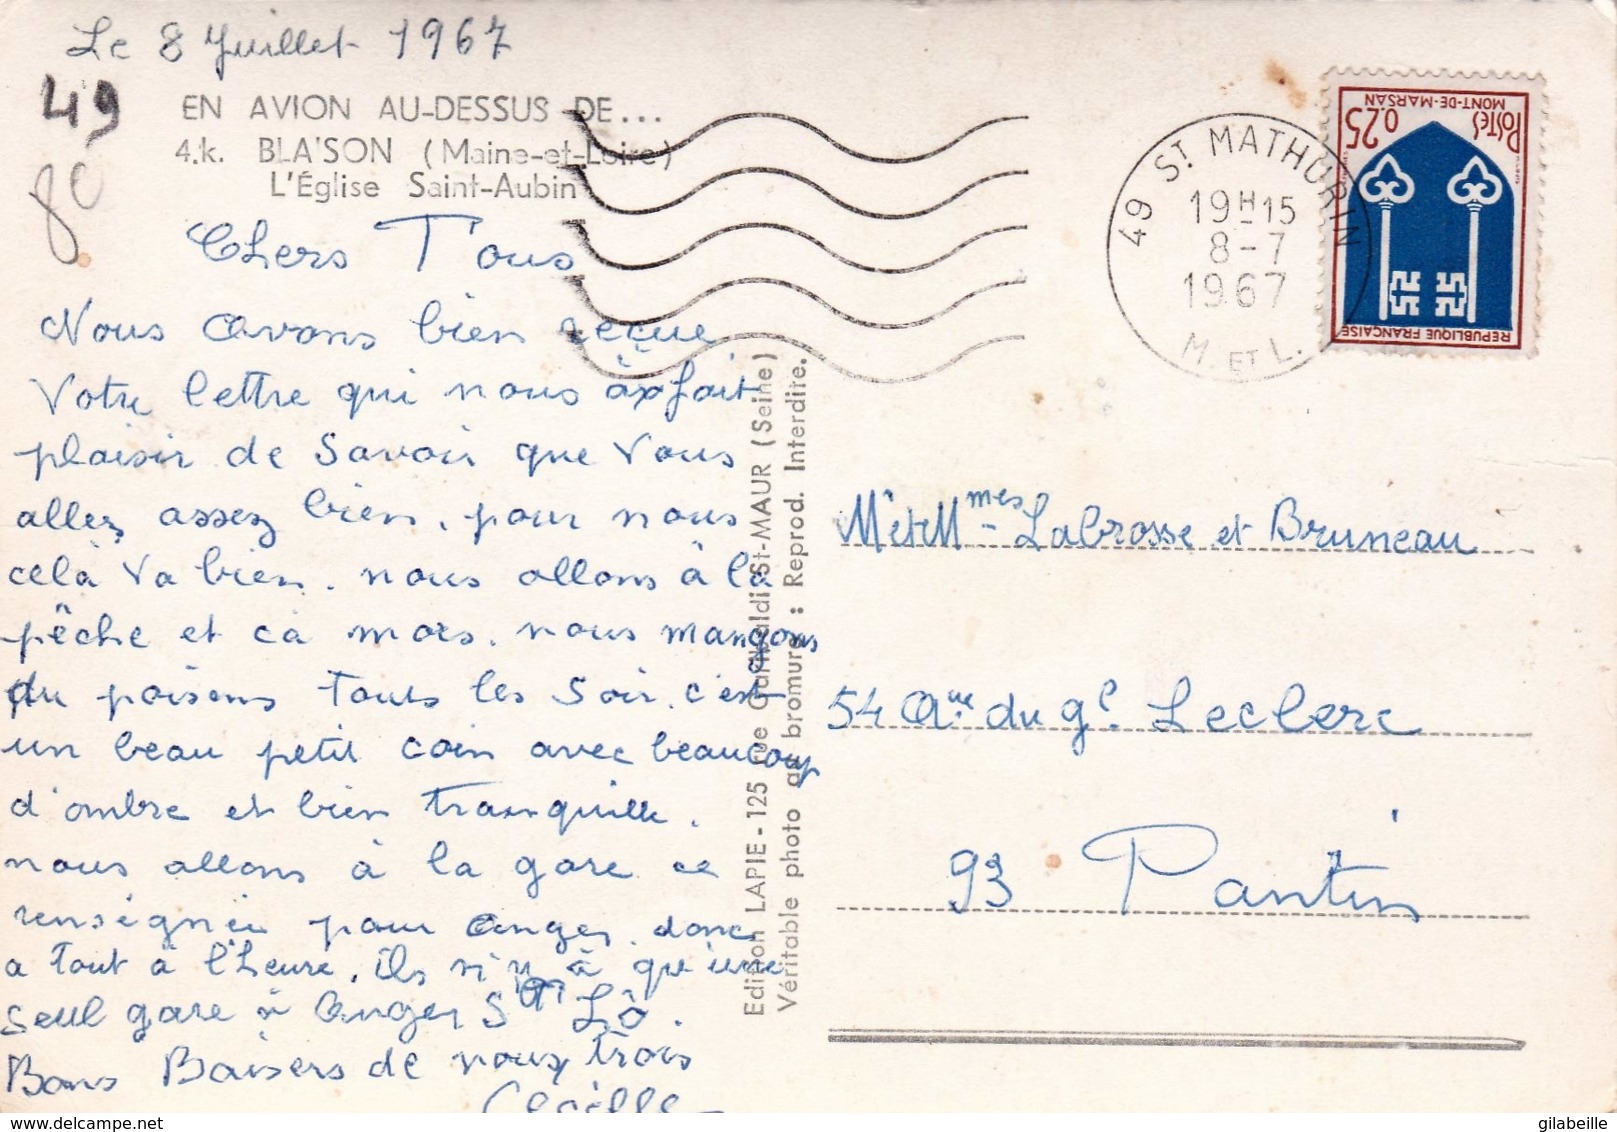 Le 8 Juillet 1967
49
80
EN AVION AU-DESSUS DE...
4.k. BLAISON (Maine-et-Loire)
L'Église Saint-Aubin
Chers Tous
Nous avons bien reçue
Votre lettre qui nous à fait
plaisir de savoir que vous
allez assez bien. pour nous
celà va bien. nous allons à la
pêche et ca mors. nous mangons
du poisens tous les soir. c'est
un beau petit coin avec beaucoup
d'ombre et bien tranquille.
nous allons à la gare ce
renségnée pour anger. donc
a tout à l'heure. ils n'y à qu'une
seul gare à Anger St Lô.
Bons Baisers de nous trois
Cécille
Edition LAPIE - 125 rue Garibaldi St-MAUR (Seine)
Véritable photo au bromure : Reprod. Interdite.
49 ST MATHURIN
19H15
8-7
1967
M. ET L.
MONT-DE-MARSAN
POSTES
0.25
REPUBLIQUE FRANÇAISE
Mr et Mmes Labrosse et Bruneau
54 Ave du gl Leclerc
93 Pantin
gilabeille